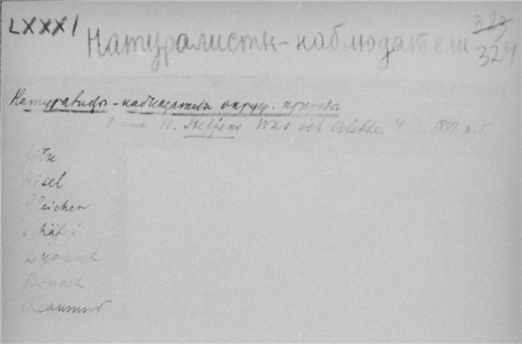 LXXXI
Натуралисты-наблюдатели 329
324
Натуралисты-наблюдатели окруж. природы
H. Steffens Was ich erlebte. 1841
Rösel
Gleichen
Schäffer
Lyonnet
Bonnet
Reaumur